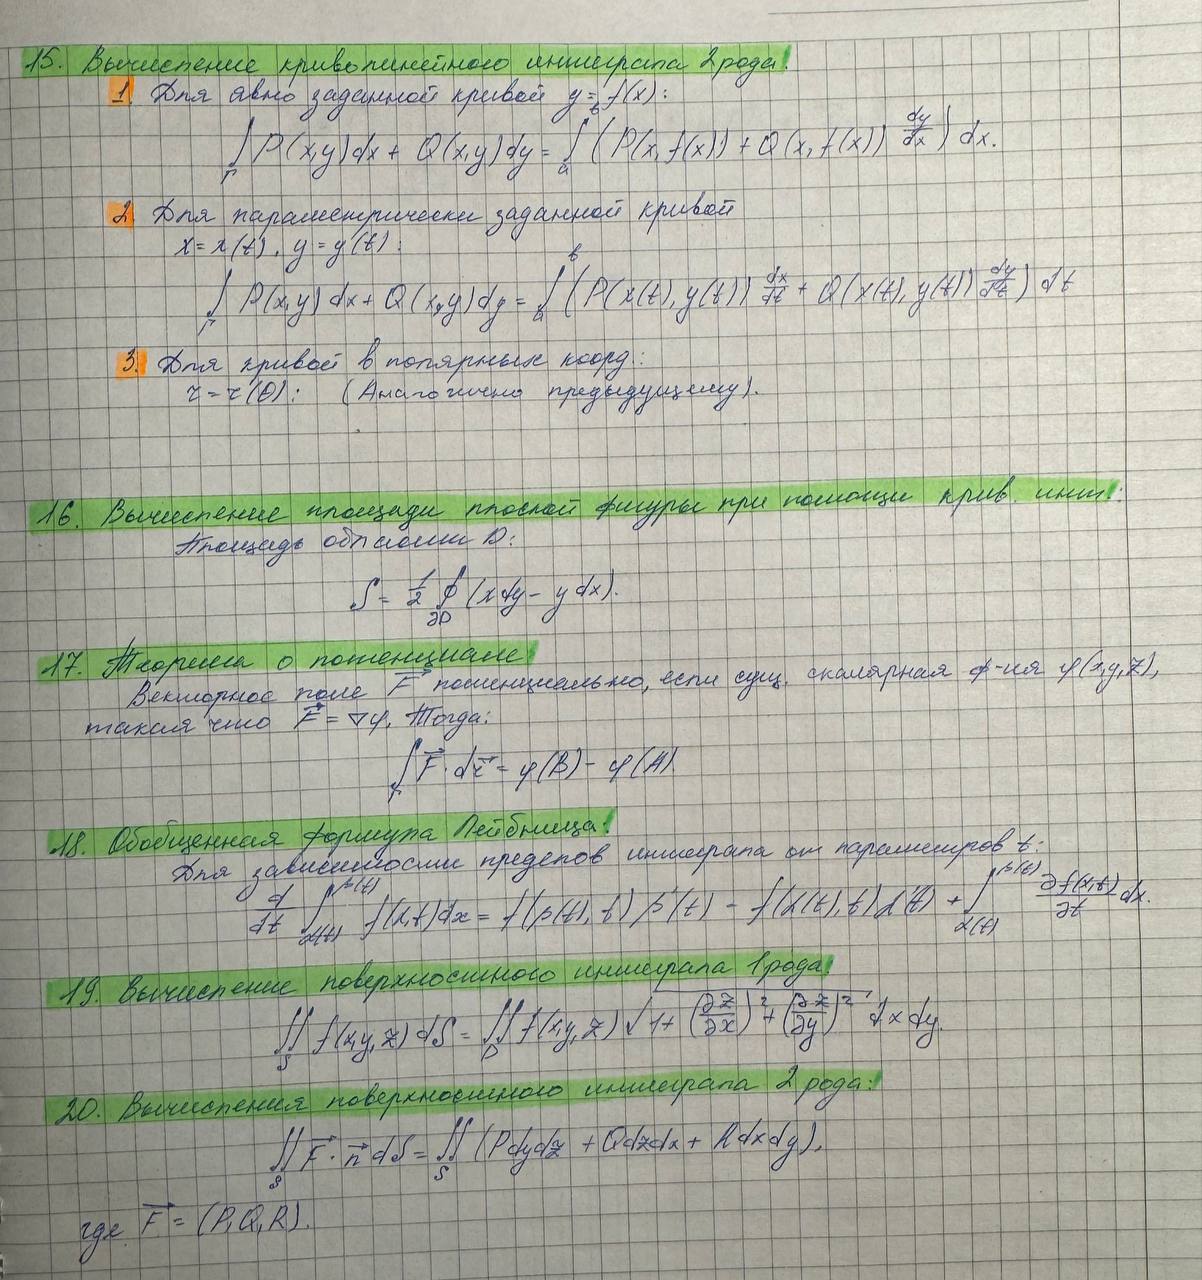 15. Вычисление криволинейного интеграла 2 рода:
1. Для явно заданной кривой y = f(x):
∫_Γ P(x,y)dx + Q(x,y)dy = ∫_a^b (P(x,f(x)) + Q(x,f(x)) dy/dx) dx.
2. Для параметрически заданной кривой
x = x(t), y = y(t):
∫_Γ P(x,y)dx + Q(x,y)dy = ∫_a^b (P(x(t),y(t)) dx/dt + Q(x(t),y(t)) dy/dt) dt
3. Для кривой в полярных коорд.:
r = r(θ): (Аналогично предыдущему).
16. Вычисление площади плоской фигуры при помощи крив. инт.:
Площадь области D:
S = 1/2 ∮_∂D (x dy − y dx).
17. Теорема о потенциале
Векторное поле F⃗ потенциально, если сущ. скалярная ф-ия φ(x,y,z),
такая что F⃗ = ∇φ. Тогда:
∫_Γ F⃗ · dr⃗ = φ(B) − φ(A).
18. Обобщенная формула Лейбница:
Для зависимости пределов интеграла от параметров t:
d/dt ∫_α(t)^β(t) f(x,t)dx = f(β(t),t) β'(t) − f(α(t),t) α'(t) + ∫_α(t)^β(t) ∂f(x,t)/∂t dx.
19. Вычисление поверхностного интеграла 1 рода:
∬_S f(x,y,z) dS = ∬_D f(x,y,z) √(1 + (∂z/∂x)² + (∂z/∂y)²) dx dy.
20. Вычисления поверхностного интеграла 2 рода:
∬_S F⃗ · n⃗ dS = ∬_S (P dy dz + Q dz dx + R dx dy),
где F⃗ = (P,Q,R).